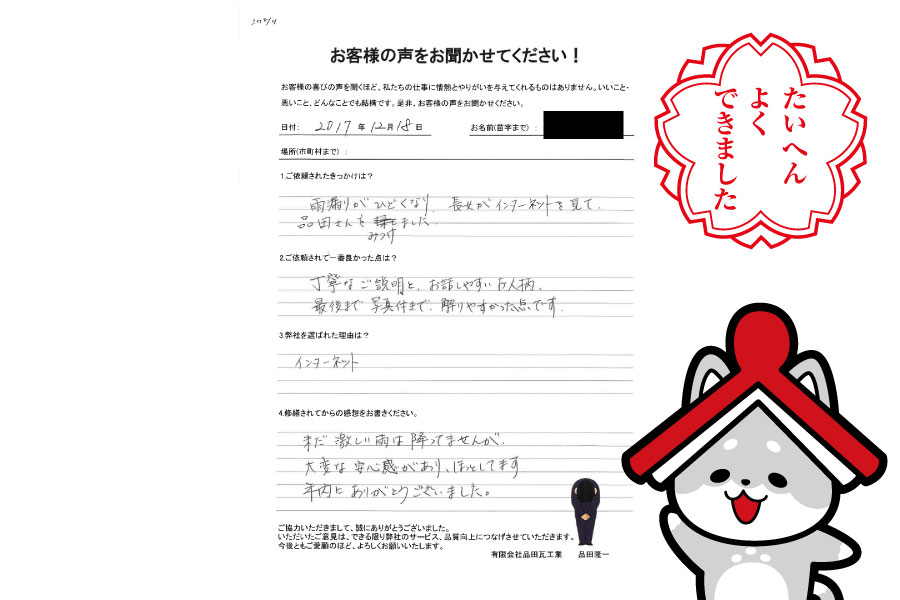 お客様の声をお聞かせてください！
お客様の喜びの声を聞くほど、私たちの仕事に情熱とやりがいを与えてくれるものはありません。いいこと・
悪いこと、どんなことでも結構です。是非、お客様の声をお聞かせください。
日付： 2017 年 12 月 18 日 お名前(苗字まで) ：
場所(市町村まで) ：
1.ご依頼されたきっかけは？
雨漏りがひどくなり、長女がインターネットを見て、
品田さんを ました。
みつけ
2.ご依頼されて一番良かった点は？
丁寧なご説明と、お話しやすいお人柄、
最後まで写真付まで、解りやすかった点です。
3.弊社を選ばれた理由は？
インターネット
4.修繕されてからの感想をお書きください。
まだ激しい雨は降ってませんが、
大変な安心感があり、ほっとしてます
年内にありがとうございました。
ご協力いただきまして、誠にありがとうございました。
いただいたご意見は、できる限り弊社のサービス、品質向上につなげさせていただきます。
今後ともご愛顧のほど、よろしくお願いいたします。
有限会社品田瓦工業 品田隆一
たいへん
よく
できました